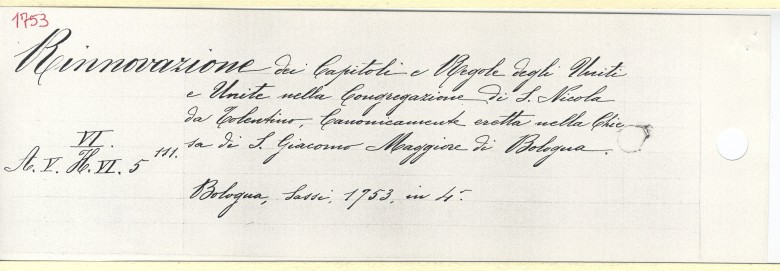 1753
Rinnovazione dei Capitoli e Regole degli Uniti
e Unite nella Congregazione di S. Nicola
da Tolentino, Canonicamente eretta nella Chie
sa di S. Giacomo Maggiore di Bologna.
VI.
A. V. H. VI. 5 111.
Bologna, Sassi, 1753, in 4.